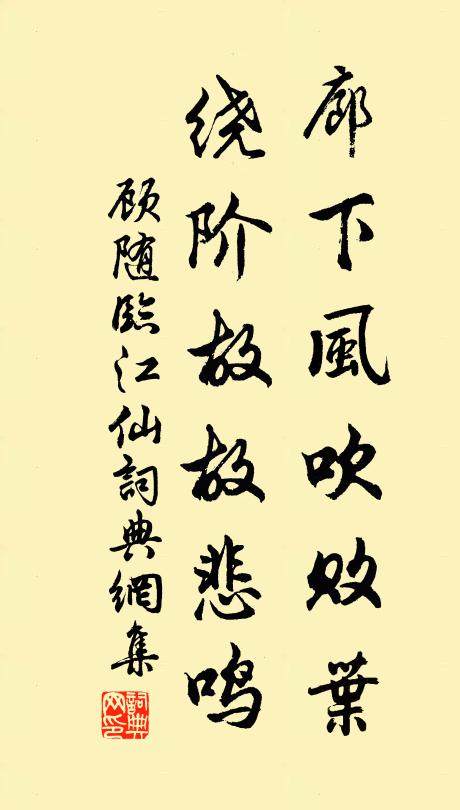 廊下風吹败葉
绕阶故故悲鸣
顾随臨江仙詞典網集
詞典網印